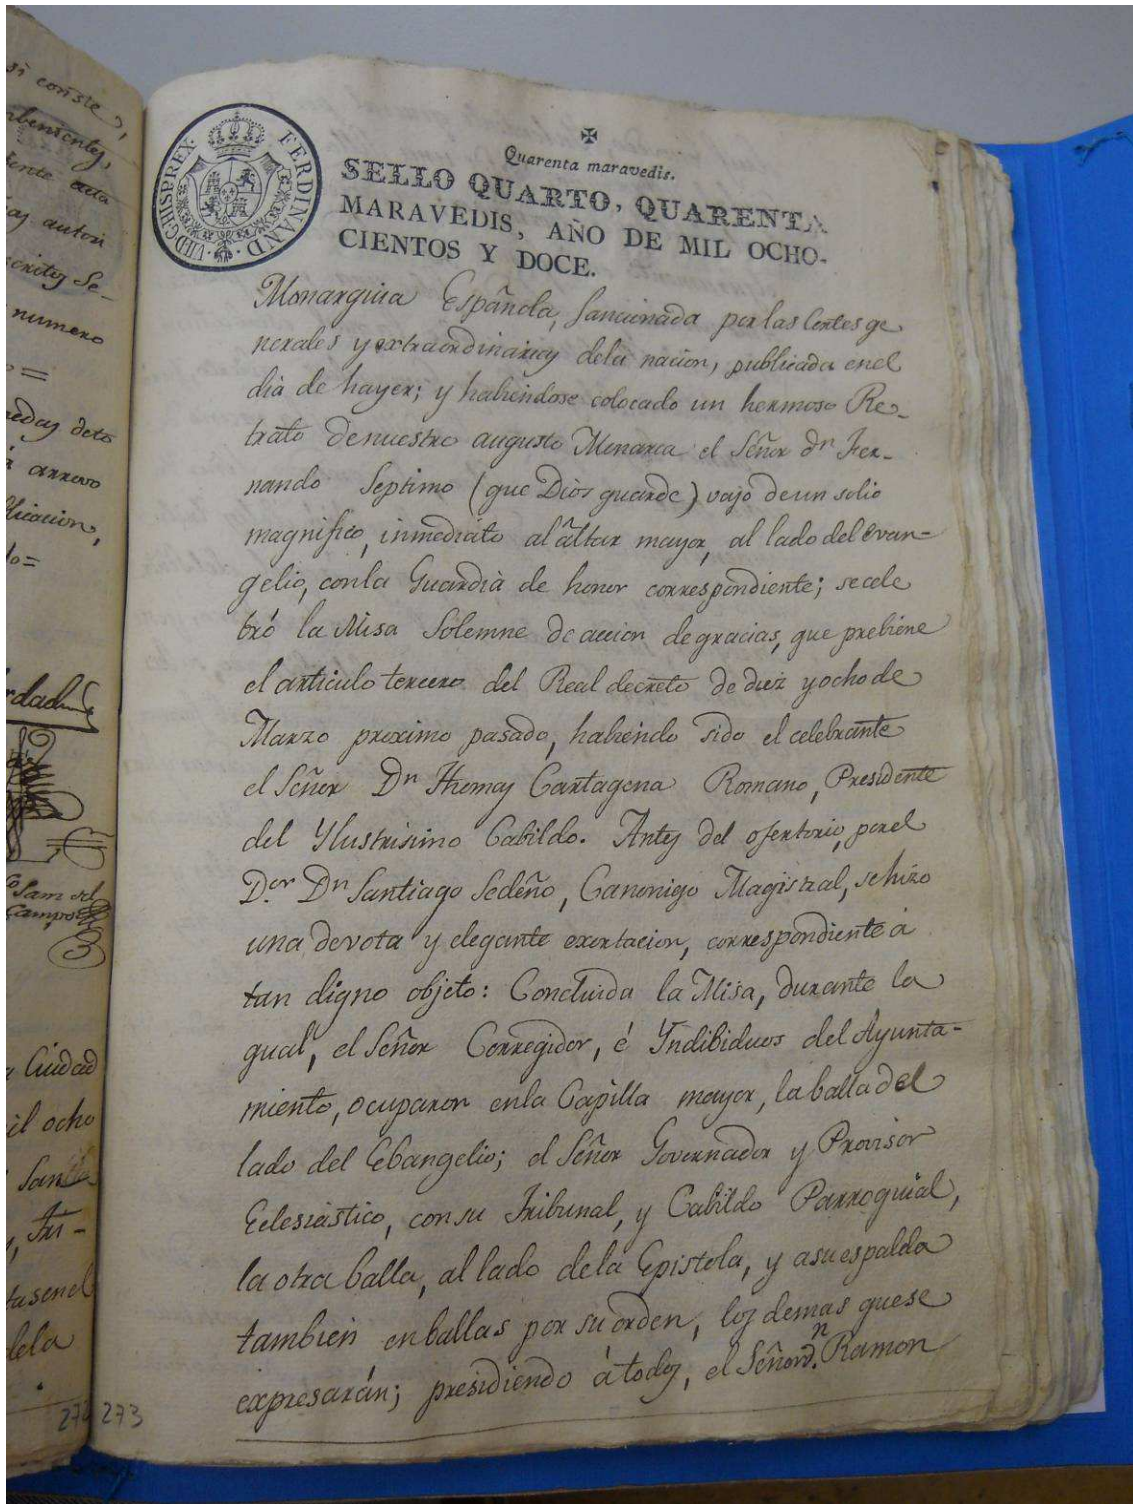 si conste,
dente acta
autori
critos Se-
numero
=
dos deto
á arreso
licacion,
do=
rdad
Sam del
Campo
Ciudad
il ocho
tri-
tasenel
dela
274 273
FERDINAND. VII. D. G. HISP. REX.
✠
Quarenta maravedis.
SELLO QUARTO, QUARENTA
MARAVEDIS, AÑO DE MIL OCHO-
CIENTOS Y DOCE.
Monarquia Española, sancionada por las Cortes ge
nerales y extraordinarias dela nacion, publicada enel
dia de hayer; y habiendose colocado un hermoso Re-
trato de nuestro augusto Monarca el Señor dn Fer-
nando Septimo (que Dios guarde) vajo de un solio
magnifico, inmediato al âltar mayor, al lado del evan=
gelio, conla Guardia de honor correspondiente; se cele
bró la Misa Solemne de accion de gracias, que prebiene
el articulo tercero del Real decreto de diez y ocho de
Marzo proximo pasado, habiendo sido el celebrante
el Señor Dn Thomas Cartagena Romano, Presidente
del Ylustrisimo Cabildo. Antes del ofertorio, por el
D.or Dn Santiago Sedeño, Canonigo Magistral, se hizo
una devota y elegante exortacion, correspondiente á
tan digno objeto: Concluida la Misa, durante la
qual, el Señor Corregidor, é Yndibiduos del Ayunta=
miento, ocuparon enla Capilla mayor, la balla del
lado del Ebangelio; el Señor Governador y Provisor
Eclesiastico, con su Tribunal, y Cabildo Parroquial,
la otra balla, al lado dela Epistola, y asu espalda
tambien en ballas por su orden, los demas que se
expresarán; presidiendo á todos, el Señor d.n Ramon